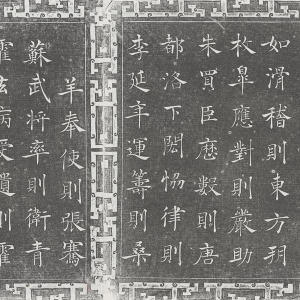 如滑稽則東方朔
枚皐應對則嚴助
朱買臣厯數則唐
都洛下閎恊律則
李延年運籌則桑
羊奉使則張騫
蘇武將率則衛青
霍去病受遺則霍